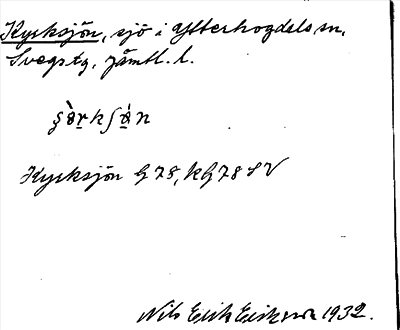 Kyrksjön, sjö i Ytterhogdals sn,
Svegs tg, Jämtl. l.
Kyrksjön G 78, kG 78 SV
Nils Erik Eriksson 1932.